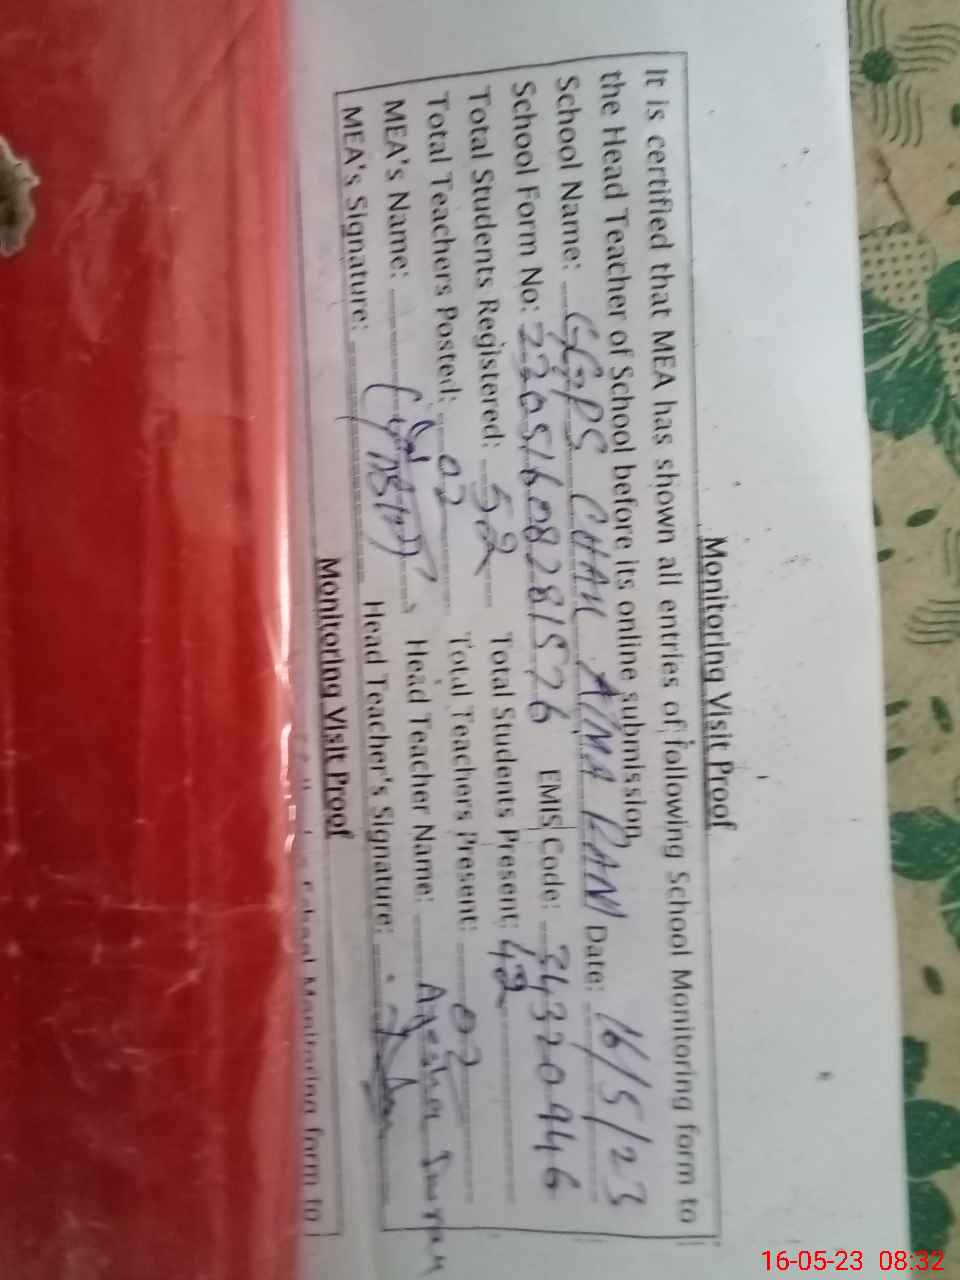 Monitoring Visit Proof
It is certified that MEA has shown all entries of following School Monitoring form to
the Head Teacher of School before its online submission.
School Name: GGPS CHAK AIMA PAN Date: 16/5/23
School Form No: 22051608281526 EMIS Code: 34320946
Total Students Registered: 52 Total Students Present: 42
Total Teachers Posted: 02 Total Teachers Present: 02
MEA's Name: Head Teacher Name: Ayesha
MEA's Signature: Head Teacher's Signature:
Monitoring Visit Proof
School Monitoring form to
16-05-23 08:32